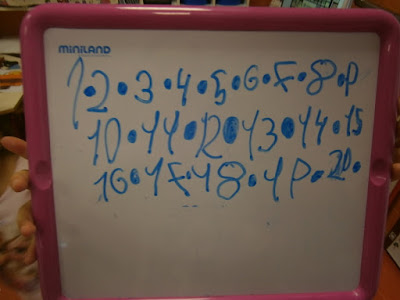 MINILAND
1•2•3•4•5•6•7•8•9
10•11•12•13•14•15
16•17•18•19•20•